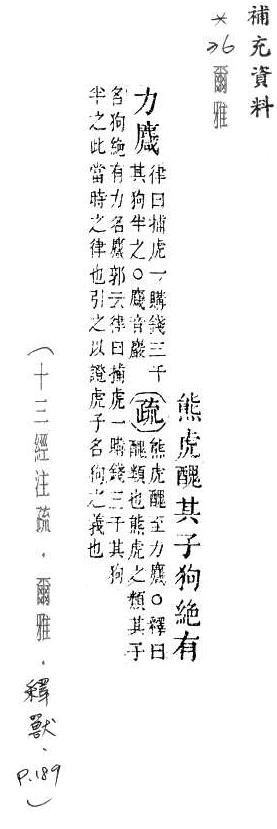 補充資料
*26 爾雅
熊虎醜其子狗絕有
力麙律曰捕虎一購錢三千
其狗半之○麙音巖
疏熊虎醜至力麙○釋曰
醜類也熊虎之類其子
名狗絕有力名麙郭云律曰捕虎一購錢三千其狗
半之此當時之律也引之以證虎子名狗之義也
(十三經注疏·爾雅·釋獸·P.189)